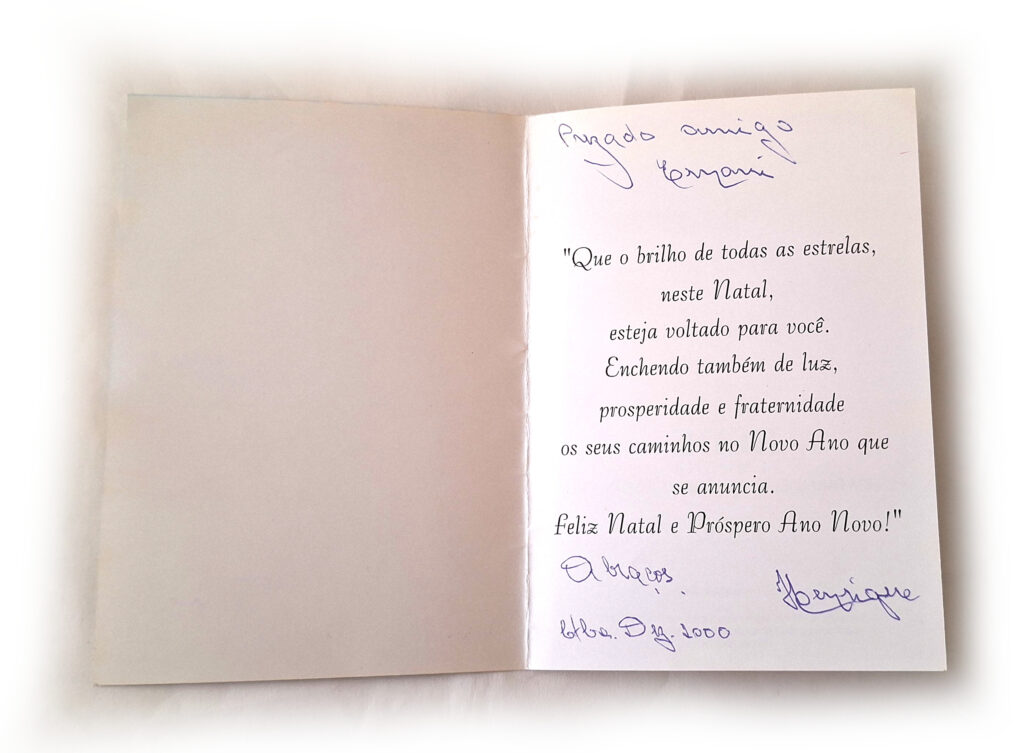 Prezado amigo
Ernani
"Que o brilho de todas as estrelas,
neste Natal,
esteja voltado para você.
Enchendo também de luz,
prosperidade e fraternidade
os seus caminhos no Novo Ano que
se anuncia.
Feliz Natal e Próspero Ano Novo!"
Abraços
Henrique
Dez. 2000